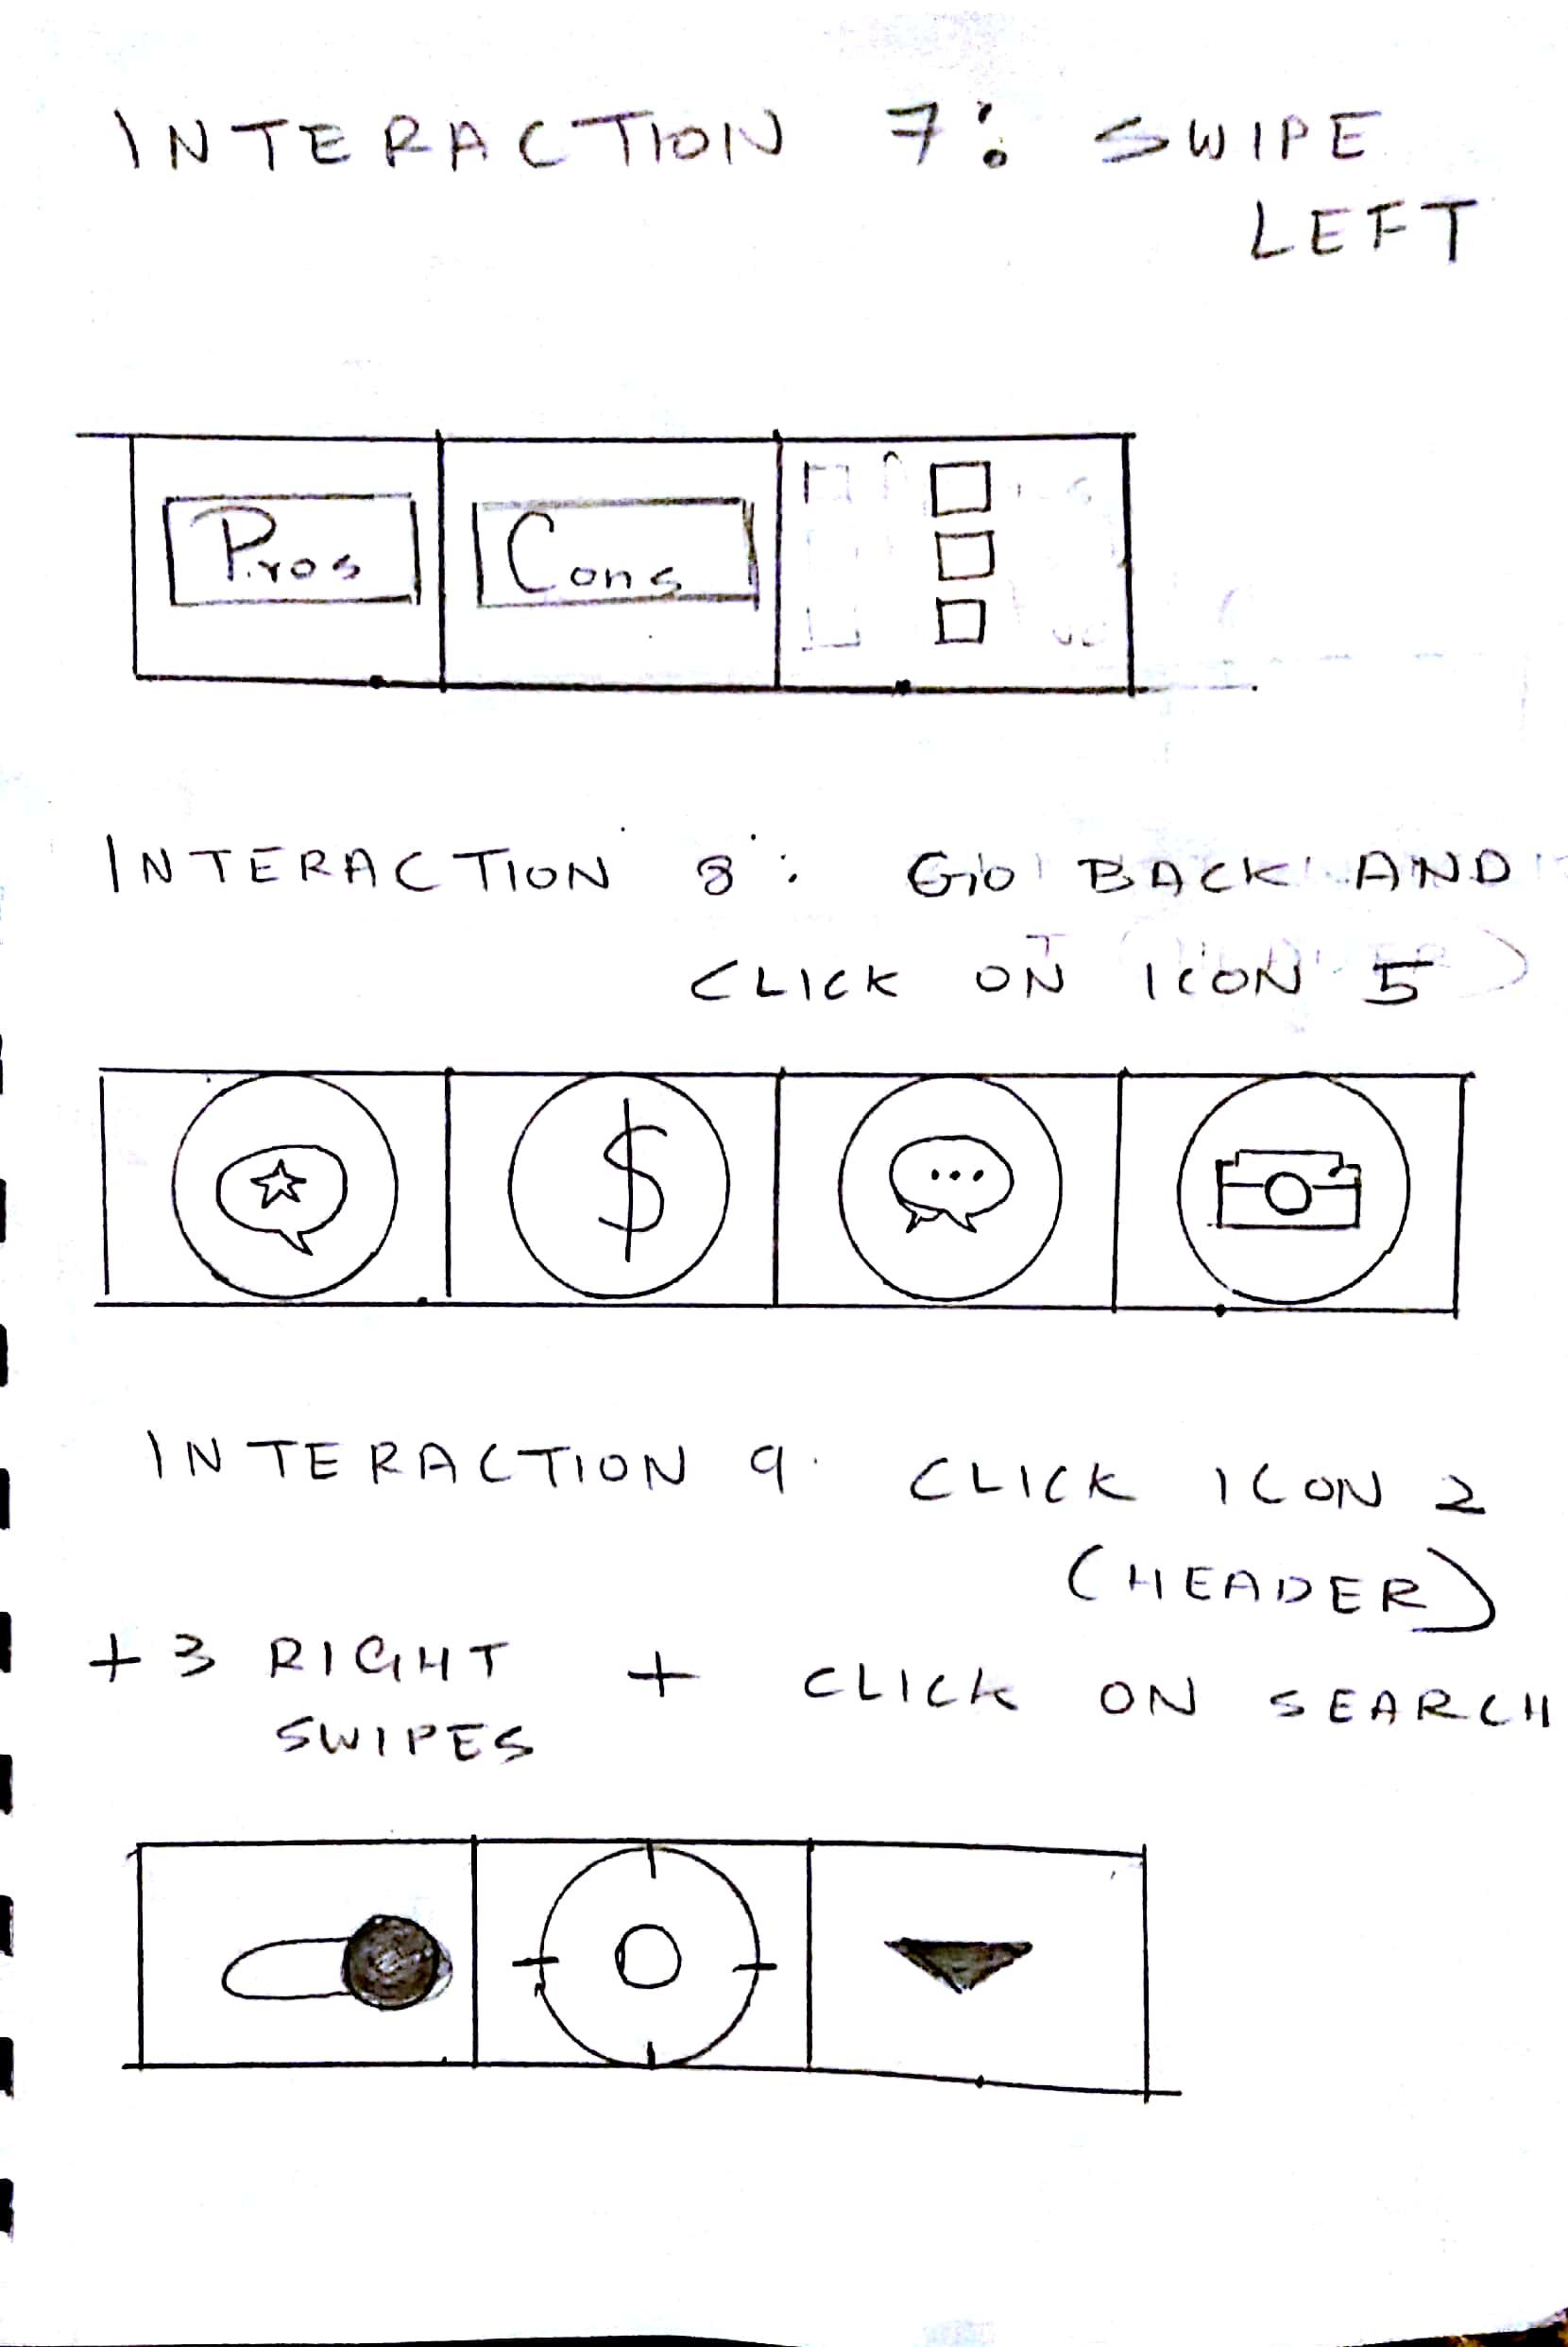 INTERACTION 7: SWIPE
LEFT
Pros Cons
INTERACTION 8: GO BACK AND
CLICK ON ICON 5
$
INTERACTION 9. CLICK ICON 2
(HEADER)
+ 3 RIGHT + CLICK ON SEARCH
SWIPES